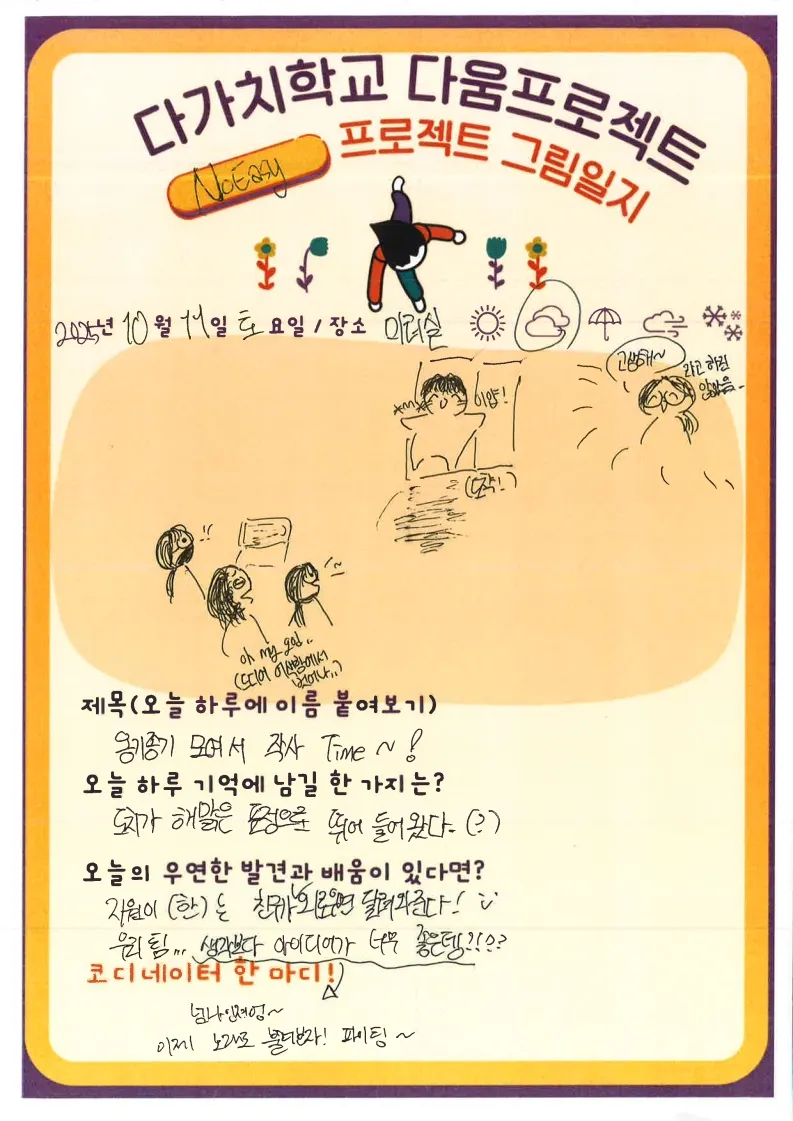 다가치학교 다움프로젝트
프로젝트 그림일지
NoEasy
2025년 10월 11일 토요일 / 장소 미리실
고생해~
라고 하진 않았음..
이얍!
(도착!)
아 my
(드디어 어색함에서 벗어나..)
제목(오늘 하루에 이름 붙여보기)
옹기종기 모여서 작사 Time ~ !
오늘 하루 기억에 남길 한 가지는?
도치가 해맑은 표정으로 뛰어 들어왔다. (?)
오늘의 우연한 발견과 배움이 있다면?
지원이 (한)는 친구가 외로우면 달려와준다!
우리 팀... 생각보다 아이디어가 너무 좋은텡?!??
코디네이터 한 마디!
이제 노래로 불러보자! 파이팅 ~